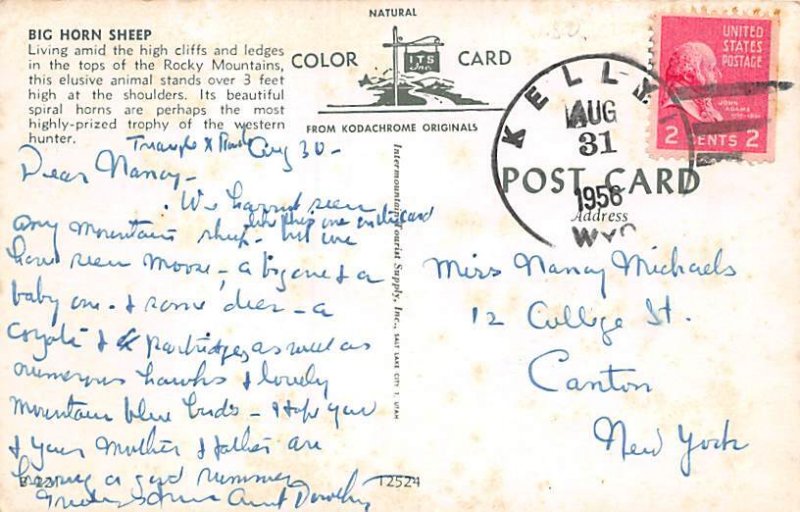 BIG HORN SHEEP
Living amid the high cliffs and ledges
in the tops of the Rocky Mountains,
this elusive animal stands over 3 feet
high at the shoulders. Its beautiful
spiral horns are perhaps the most
highly-prized trophy of the western
hunter.
NATURAL
COLOR ITS Inc. CARD
FROM KODACHROME ORIGINALS
UNITED
STATES
POSTAGE
JOHN
ADAMS
2 CENTS 2
KELLY
AUG
31
1956
WYO
POST CARD
Address
Triangle X Ranch Aug 30-
Dear Nancy-
We haven't seen
like this one on the card
any mountain sheep - but we
have seen moose - a big one & a
baby one - & some deer - a
Coyote & partridges, as well as
numerous hawks & lovely
Mountain blue birds - I hope you
& your mother & father are
having a good summer
Aunt Dorothy
E-221
12524
Intermountain Tourist Supply, Inc., SALT LAKE CITY 1, UTAH
Miss Nancy Michaels
12 College St.
Canton
New York